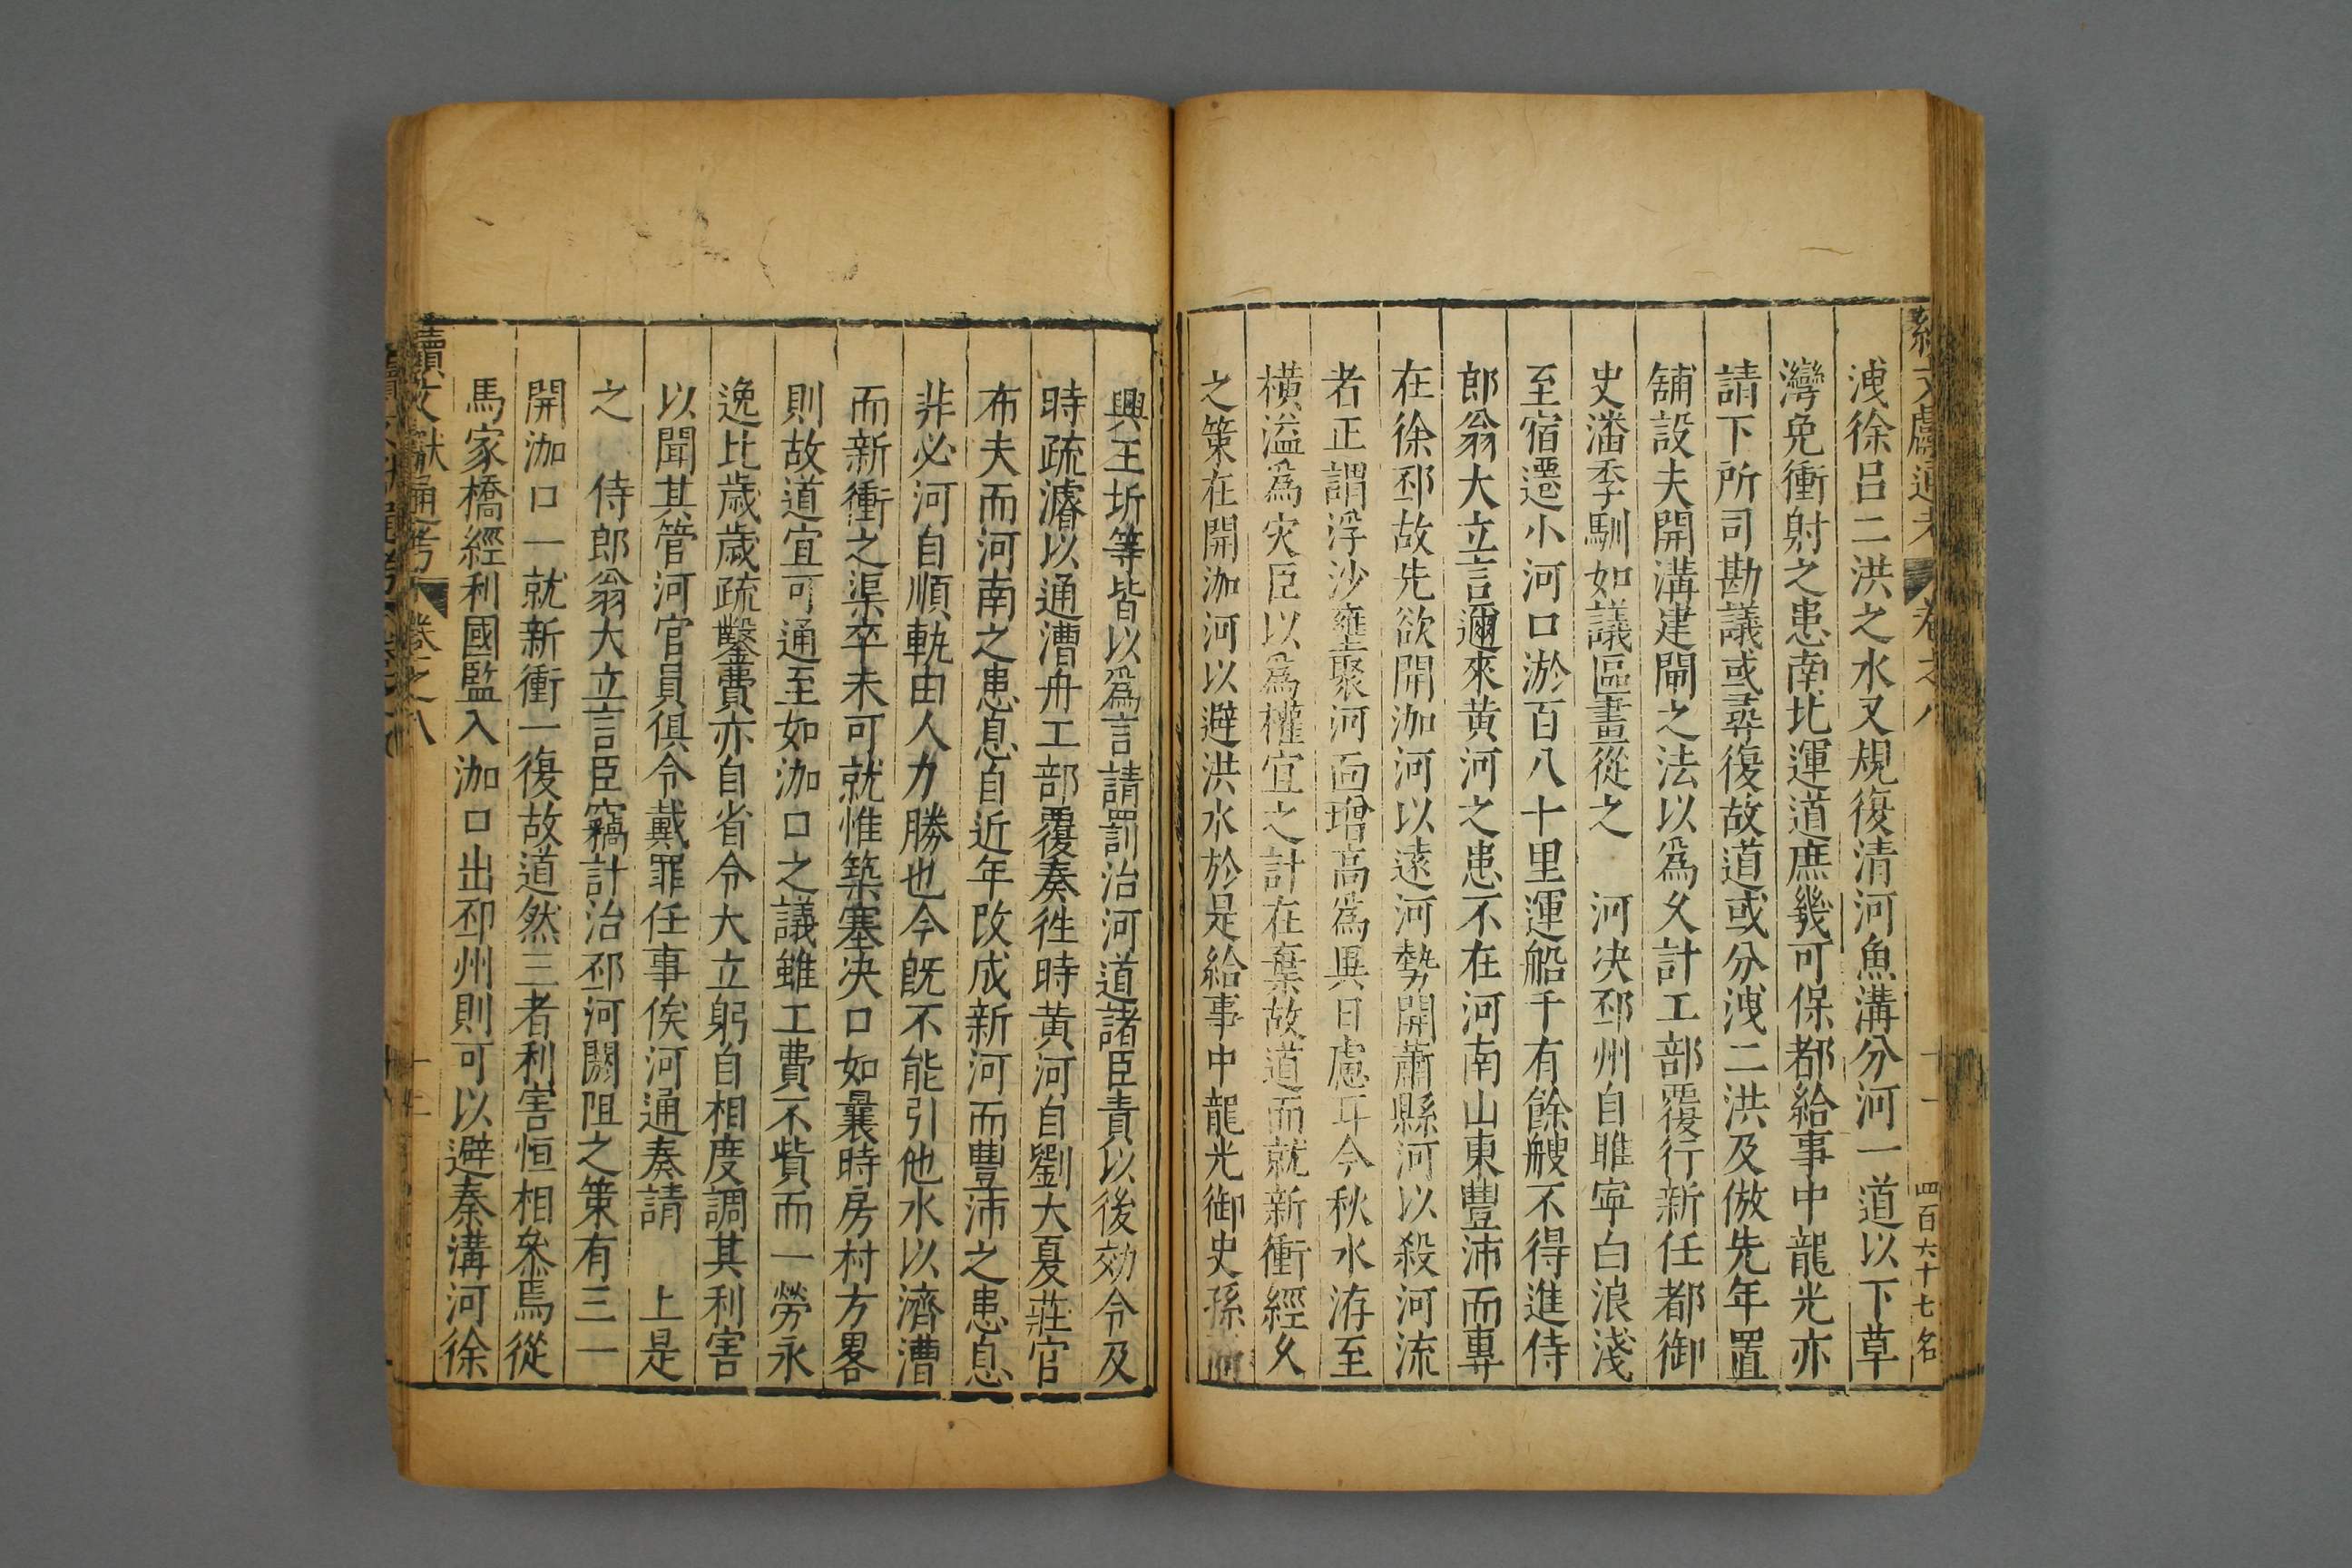 卷之八
四百六十七名
洩徐呂二洪之水又規復清河魚溝分河一道以下草
灣免衝射之患南北運道庶幾可保都給事中龍光亦
請下所司勘議或尋復故道或分洩二洪及倣先年置
舖設夫開溝建閘之法以爲久計工部覆行新任都御
史潘季馴如議區畫從之　河决邳州自睢寧白浪淺
至宿遷小河口淤百八十里運船千有餘艘不得進侍
郎翁大立言邇來黄河之患不在河南山東豐沛而專
在徐邳故先欲開泇河以遠河勢開蕭縣河以殺河流
者正謂浮沙壅聚河面增高爲異日慮耳今秋水洊至
橫溢爲灾臣以爲權宜之計在棄故道而就新衝經久
之策在開泇河以避洪水於是給事中龍光御史孫
興王圻等皆以爲言請罰治河道諸臣責以後効令及
時疏濬以通漕舟工部覆奏徃時黄河自劉大夏莊官
布夫而河南之患息自近年改成新河而豐沛之患息
非必河自順軌由人力勝也今旣不能引他水以濟漕
而新衝之渠卒未可就惟築塞决口如曩時房村方畧
則故道宜可通至如泇口之議雖工費不貲而一勞永
逸比歲歲疏鑿費亦自省令大立躬自相度調其利害
以聞其管河官員俱令戴罪任事俟河通奏請　上是
之　侍郎翁大立言臣竊計治邳河閼阻之策有三一
開泇口一就新衝一復故道然三者利害恒相叅焉從
馬家橋經利國監入泇口出邳州則可以避秦溝河徐
續文獻通考　卷之八
十二